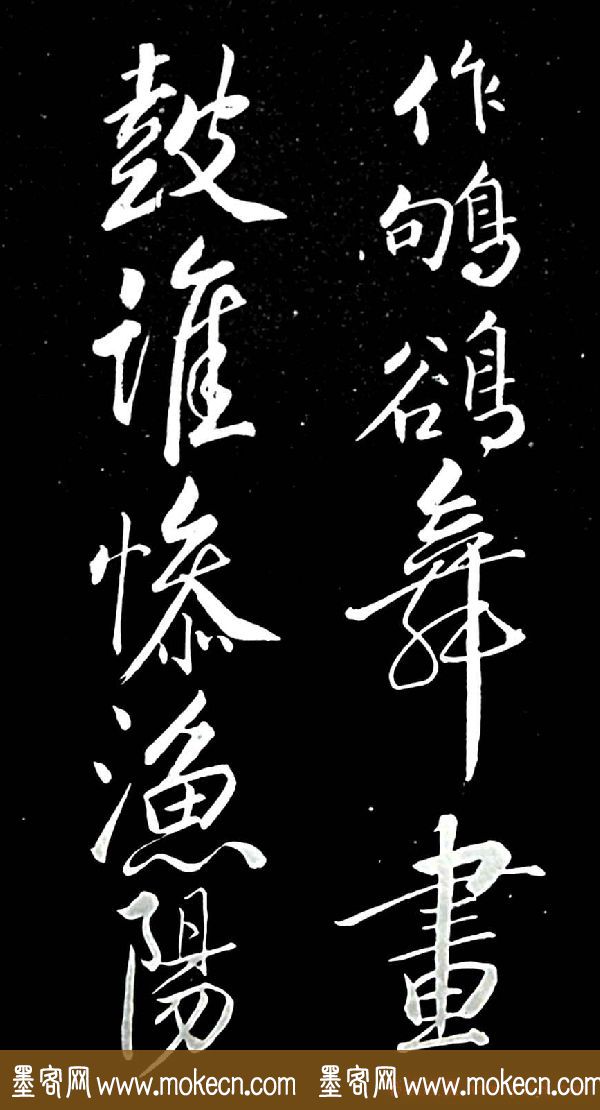 作鴝鵒舞畫
鼓誰慘漁陽
墨客网 www.mokecn.com 墨客网 www.mokecn.com